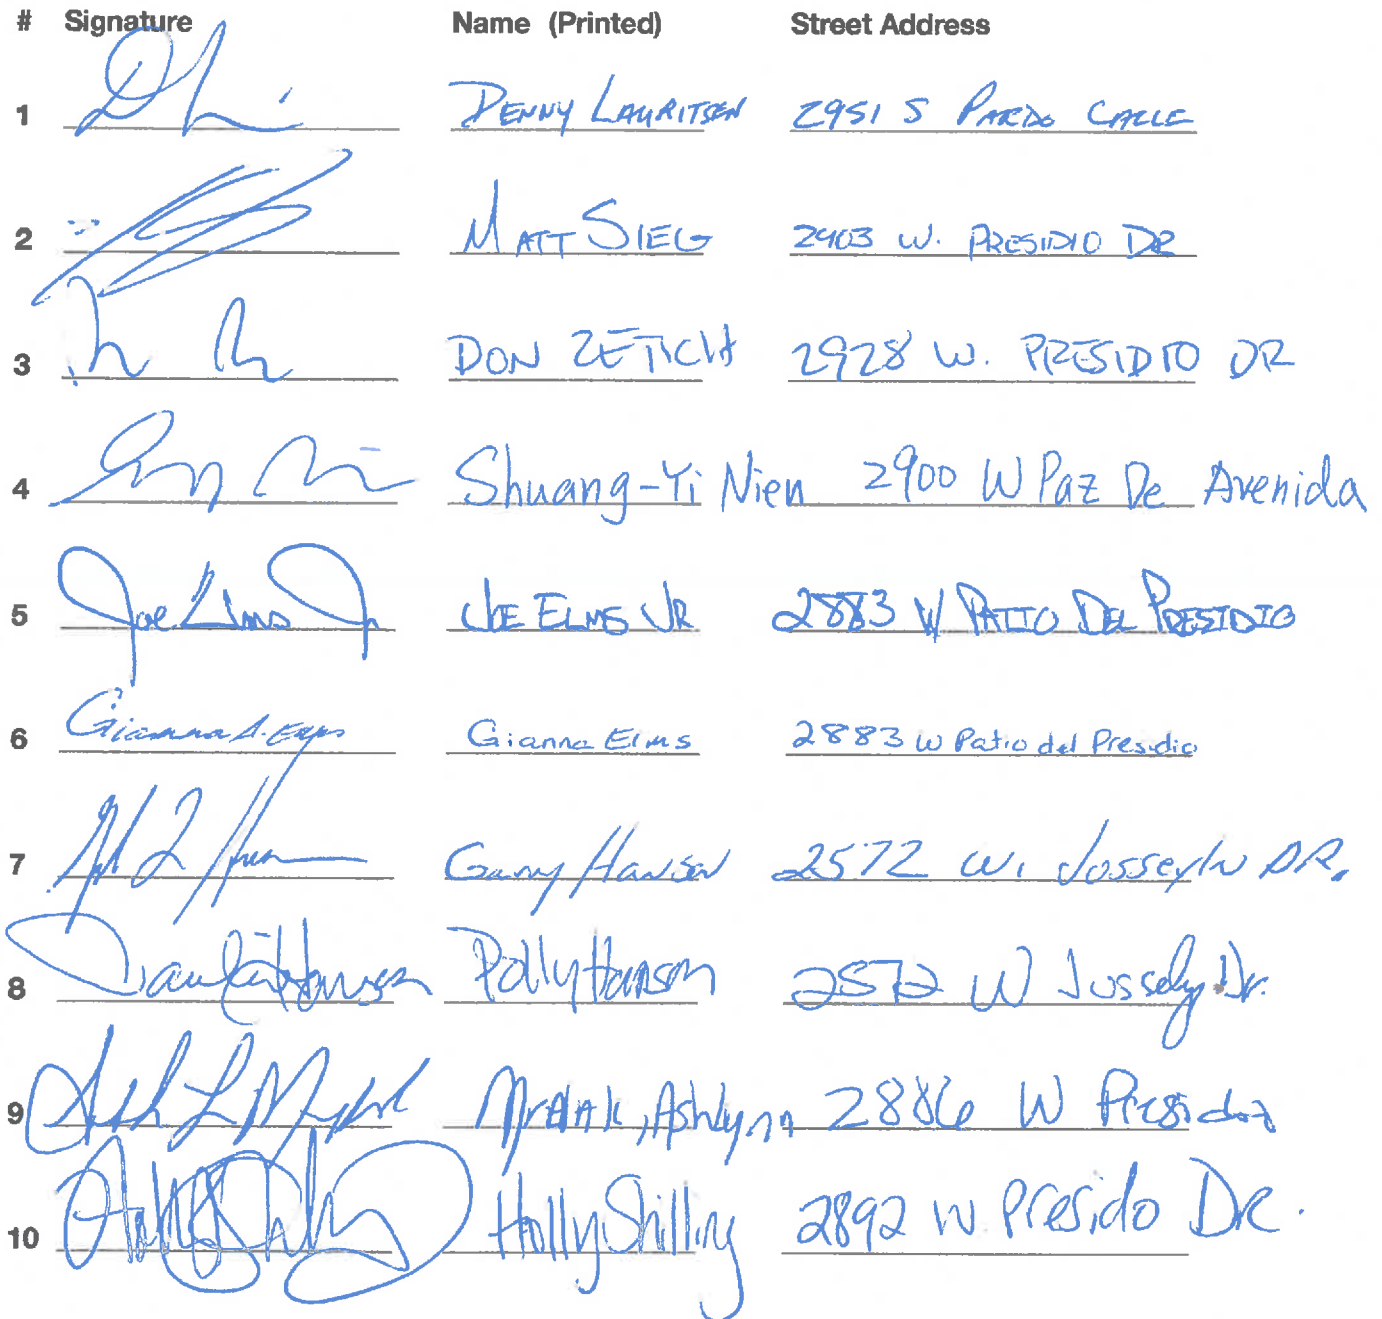 # Signature Name (Printed) Street Address
1 DENNY LAURITSEN 2951 S PARDO CALLE
2 MATT SIEG 2903 W. PRESIDIO DR
3 DON ZETICH 2928 W. PRESIDIO DR
4 Shuang-Yi Nien 2900 W Paz De Avenida
5 Joe Elms Jr JOE ELMS JR 2883 W PATIO DEL PRESIDIO
6 Gianna Elms 2883 W Patio del Presidio
7 Gary Hansen 2572 W. Josselyn DR.
8 Polly Hanson 2572 W Jossely Dr.
9 Ashlynn 2886 W Presidio
10 Holly Shilling 2892 W Presido DR.